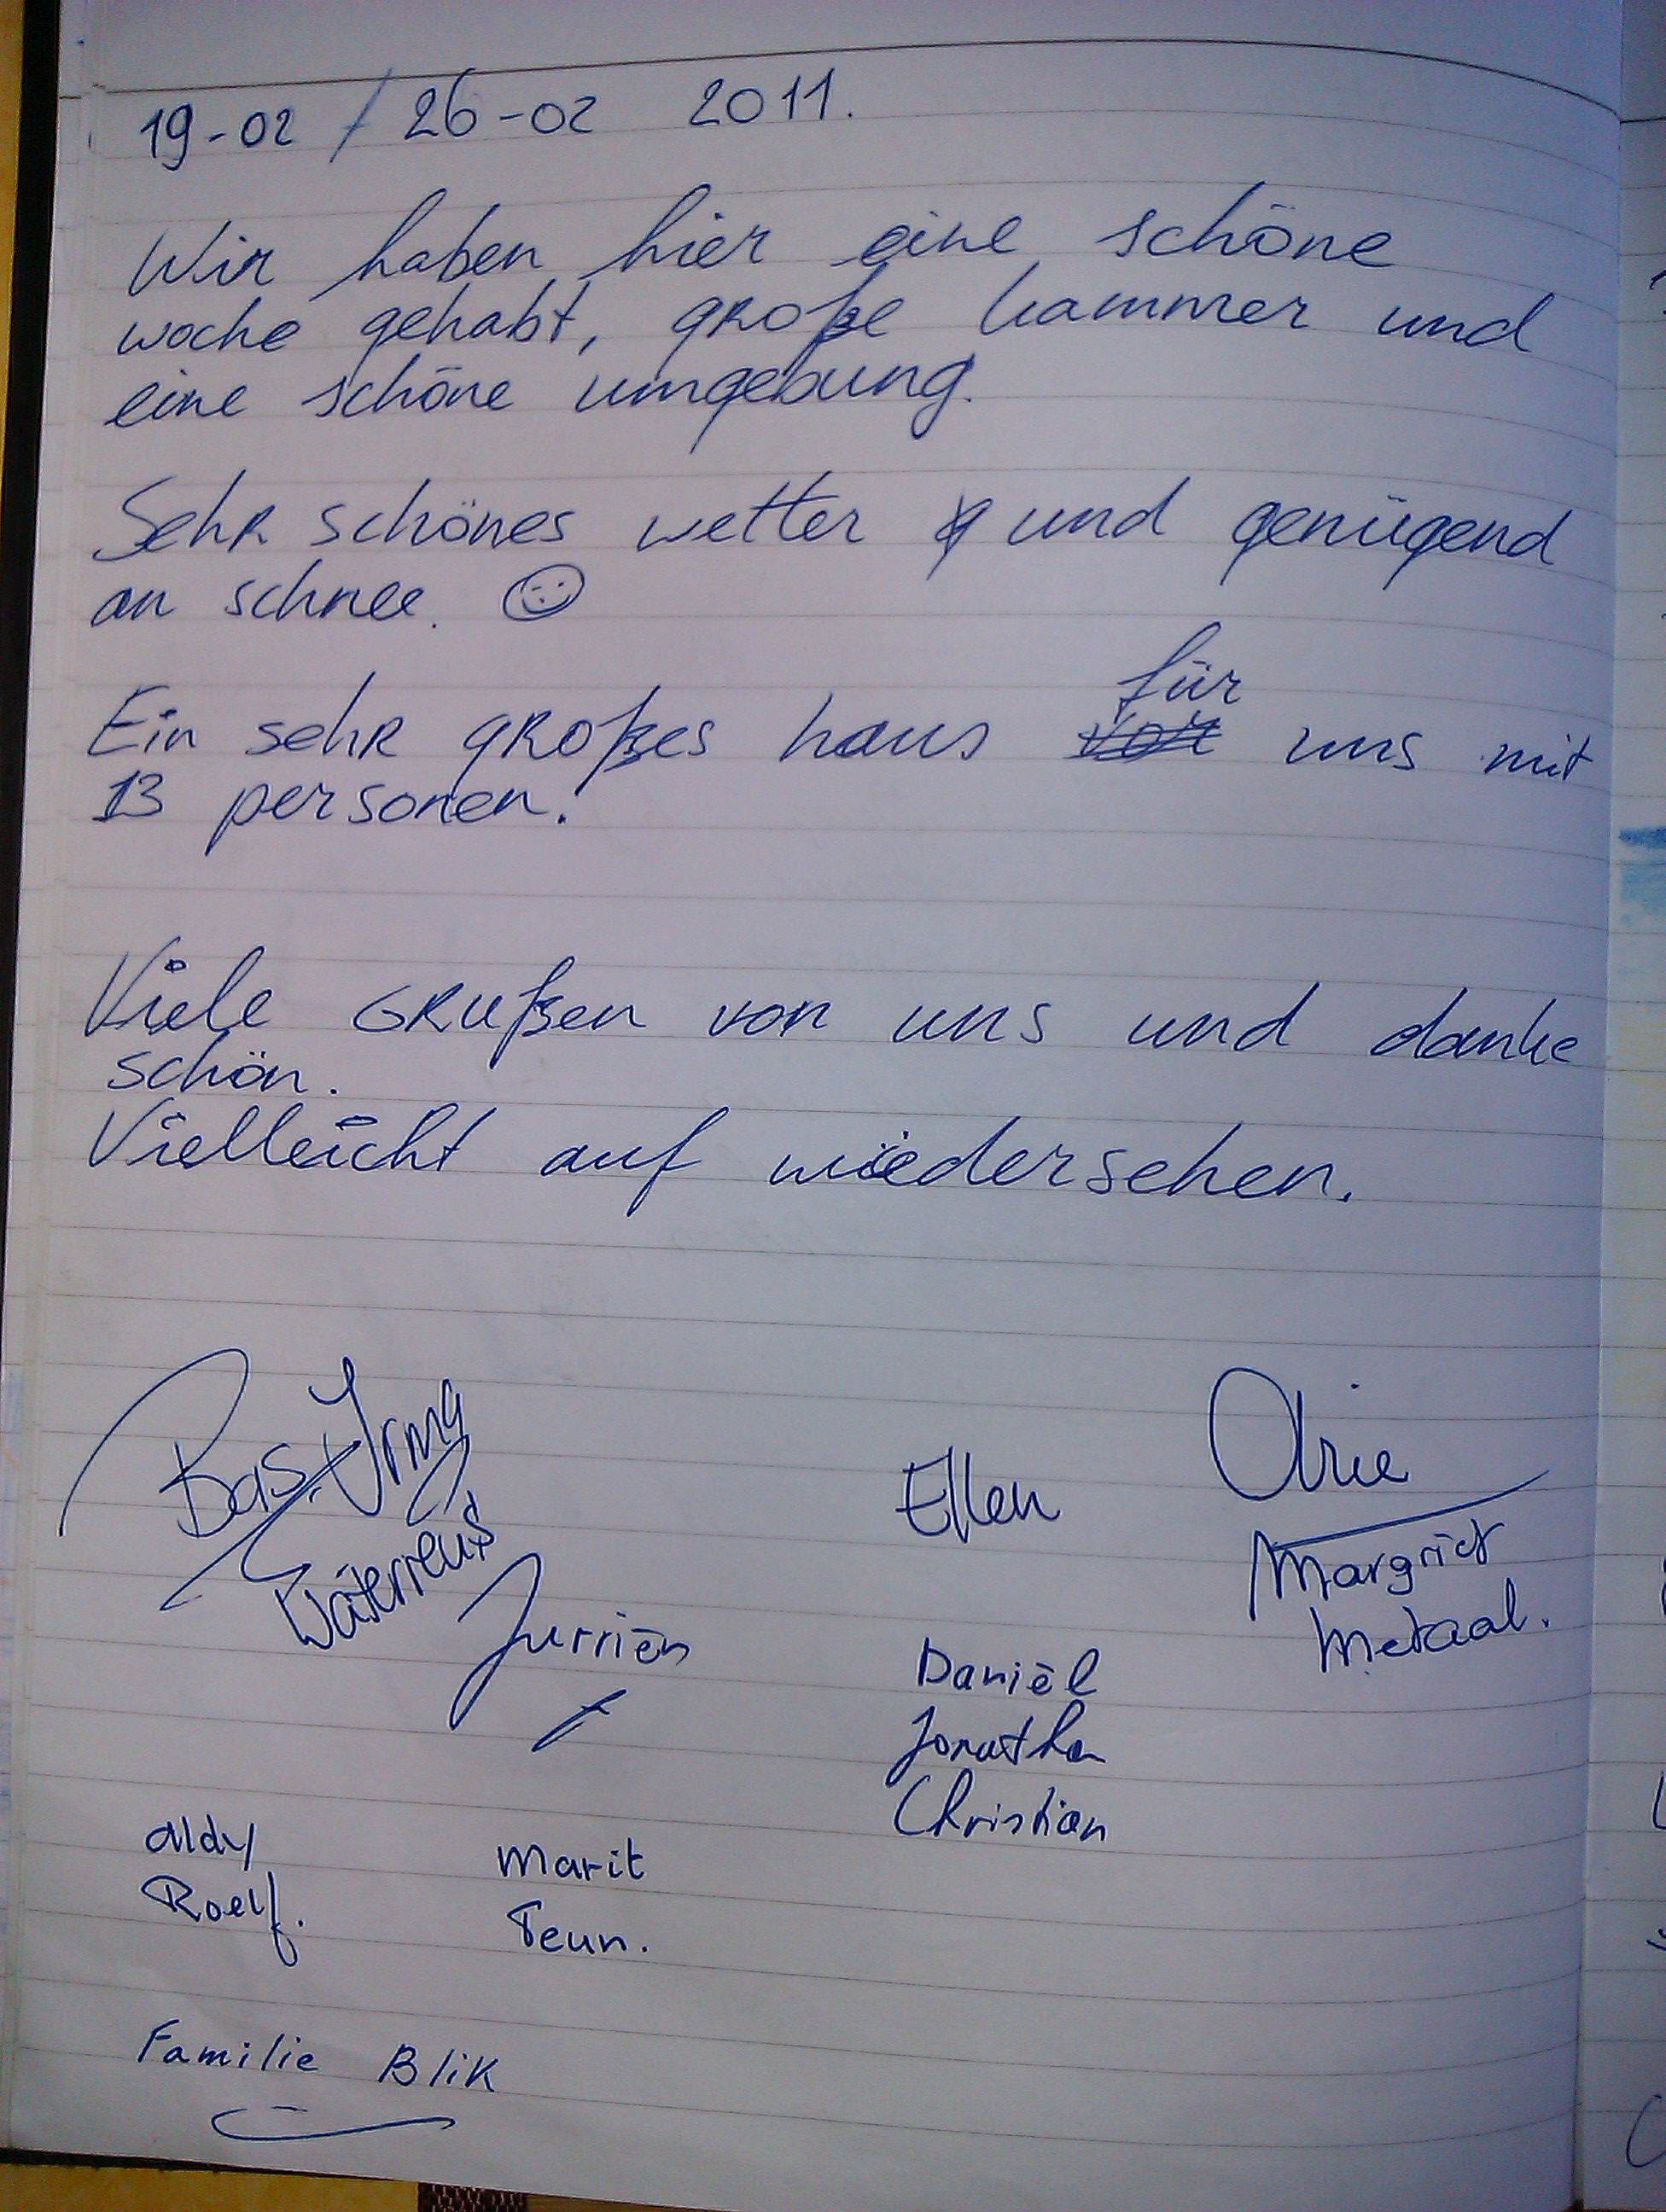 19-02 / 26-02 2011.
Wir haben hier eine schöne
woche gehabt, große kammer und
eine schöne umgebung.
Sehr schönes wetter und genügend
an schnee. ☺
für
Ein sehr großes haus uns mit
13 personen!
Viele Grußen von uns und danke
schön.
Vielleicht auf wiedersehen.
Bas + Irma
Waterreus
Jurriën
Ellen
Arie
Margriet
Metaal.
Daniël
Jonathan
Christian
Aldy
Roelf.
Marit
Teun.
Familie Blik